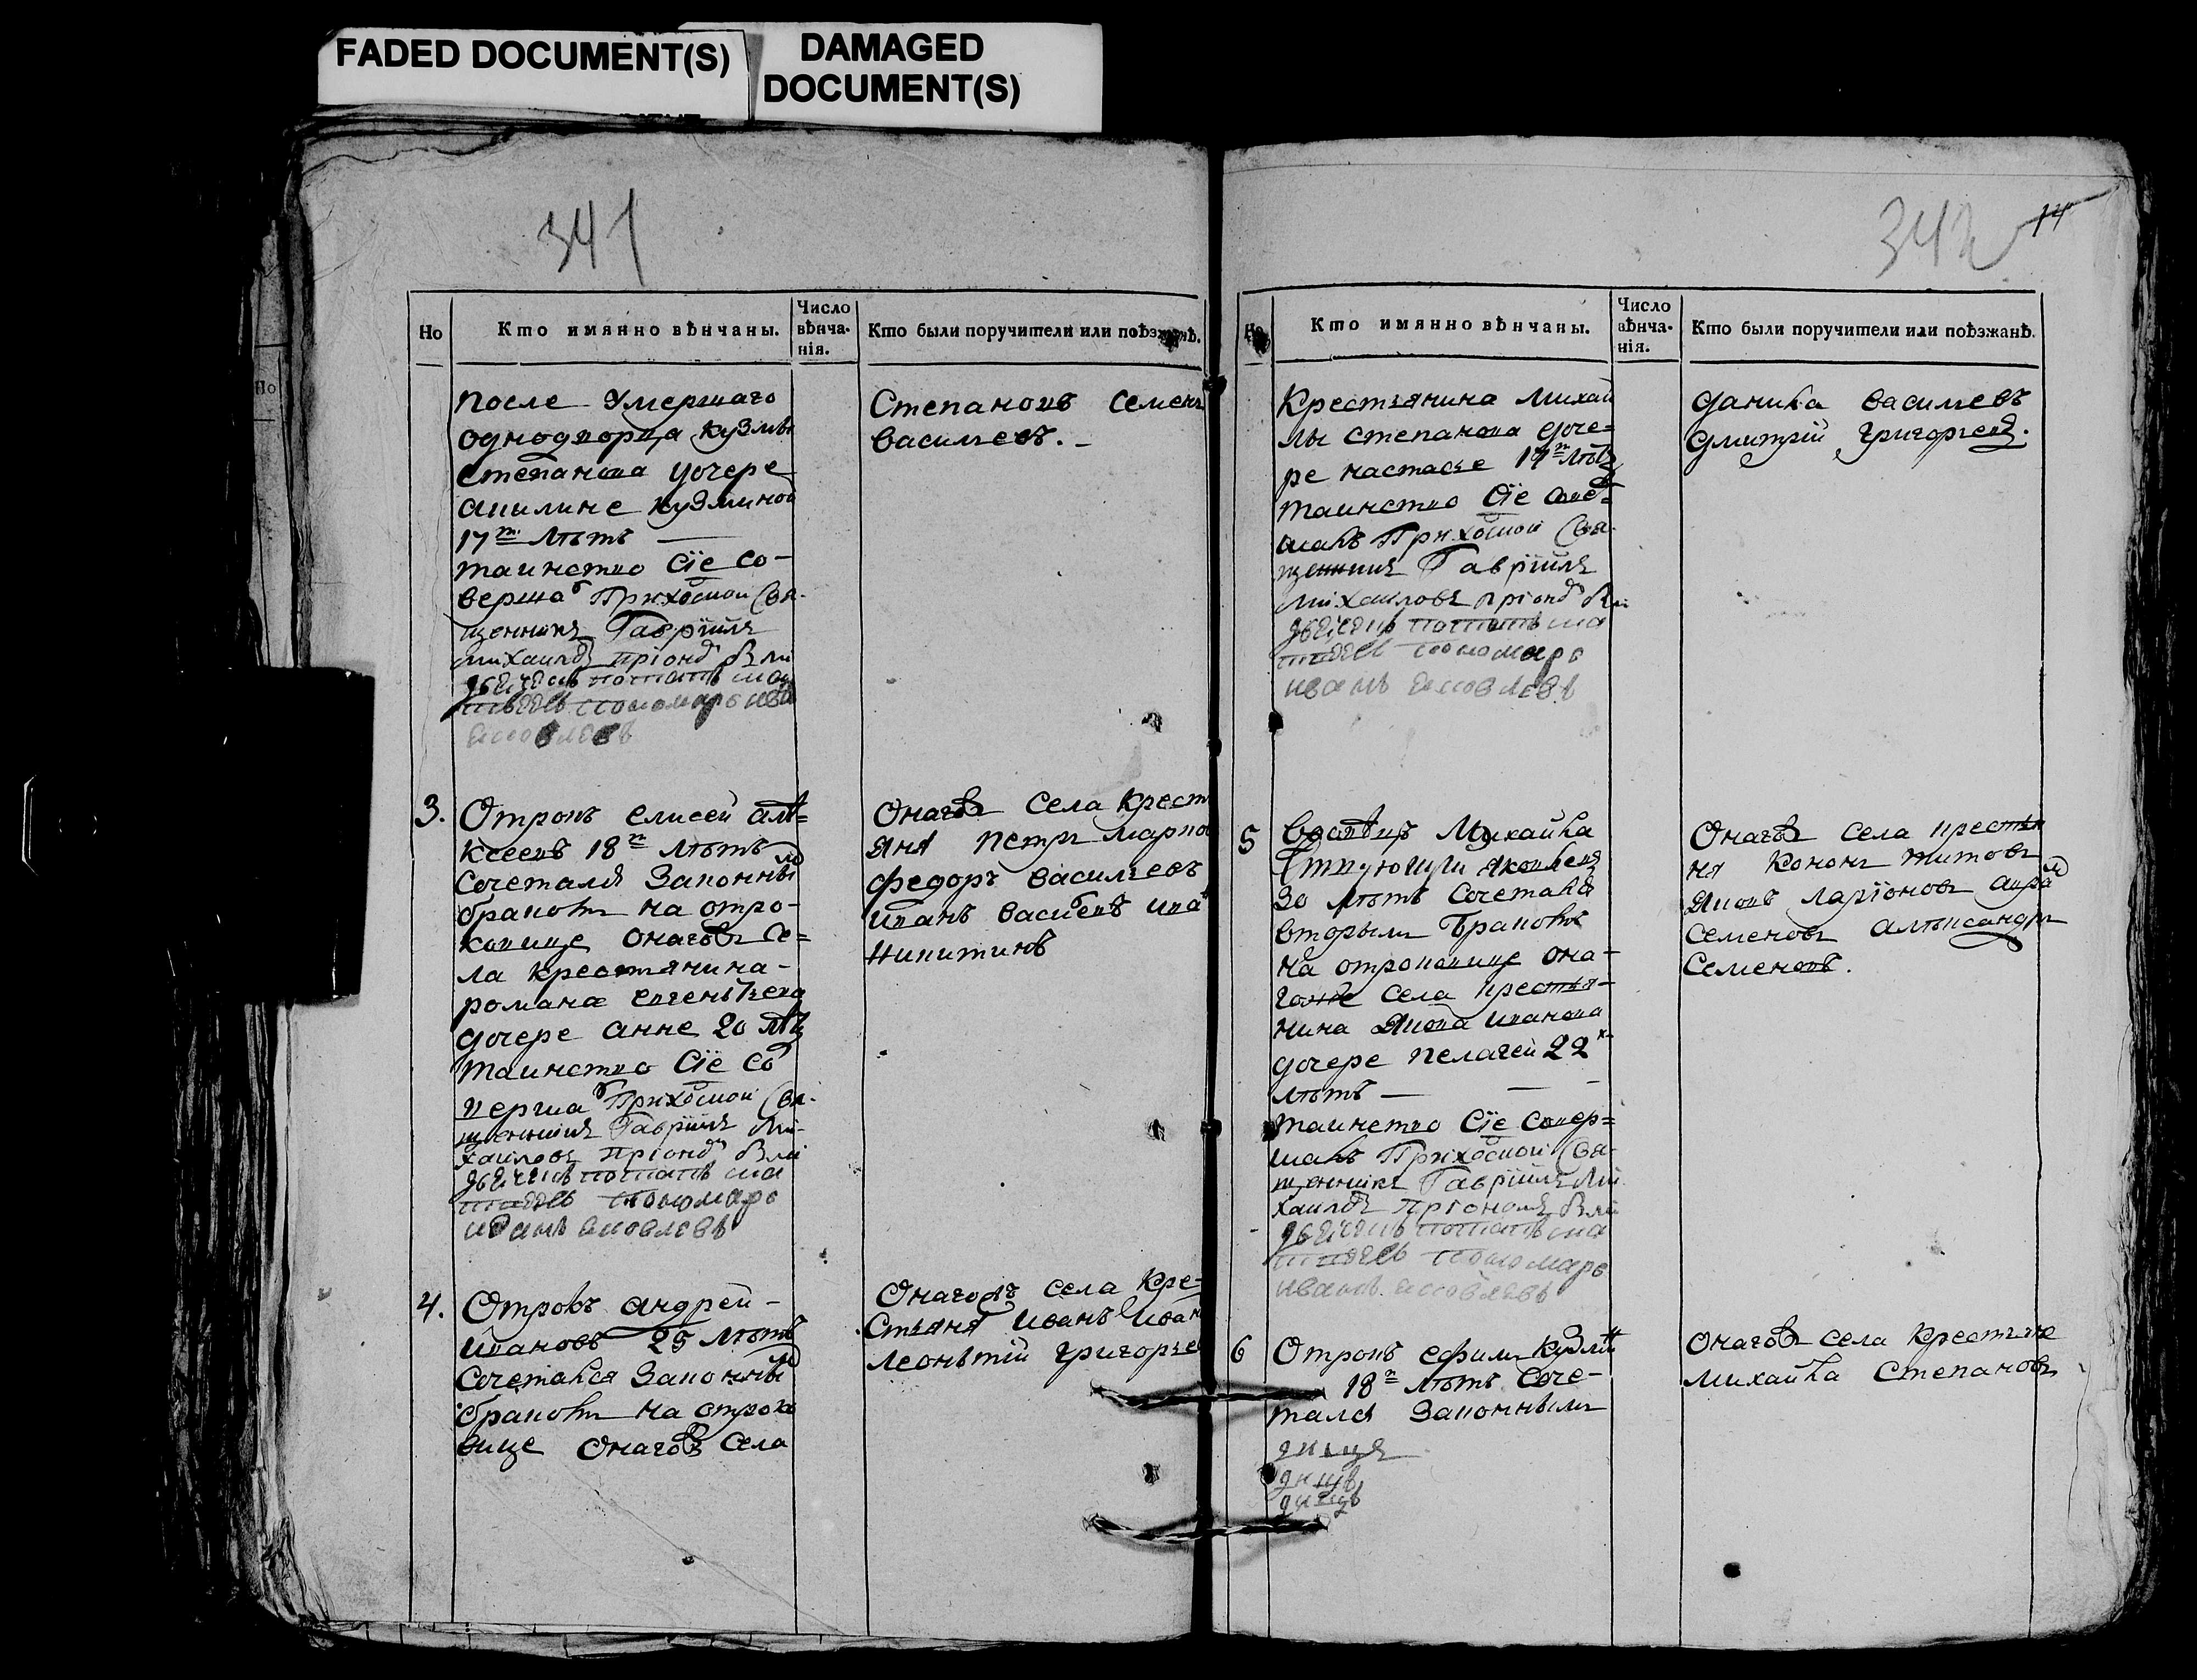 FADED DOCUMENT(S)
DAMAGED
DOCUMENT(S)
341
Но
Кто имянно вѣнчаны.
Число
вѣнча-
нія.
Кто были поручители или поѣзжанѣ.
после Умершаго
однодворца Кузмы
Степанова дочере
Акилине Кузминой
17ти лѣтъ —
таинство Сїе со-
верша Приходской Свя-
щенникъ Гаврїилъ
Михаиловъ
пономарь
Степановъ Семенъ
Васильевъ. -
3.
Отрокъ елисей але=
ксеевъ 18ти лѣтъ
Сочетался Законным
бракомъ на отро-
ковице онагожъ Се=
ла крестьянина -
романа
дочере анне 20 лѣтъ
таинство Сїе Со
верша Приходской Свя-
щенникъ Гаврїилъ Ми-
хаиловъ
пономарь
иванъ яковлевъ
Онагожъ Села Крест
яня петръ марко
федоръ васильевъ
иванъ васильевъ ива
никитинъ
4.
Отрокъ андрей -
ивановъ 25 лѣтъ
Сочетался Законным
бракомъ на отроко
вице онагожъ Села
Онагожъ села Кре-
стьяня иванъ иван
леонътій григорье
342
14
Кто имянно вѣнчаны.
Число
вѣнча-
нія.
Кто были поручители или поѣзжанѣ.
Крестьянина Михаи
лы степанова доче=
ре настасье 17ти лѣтъ
таинство Сїе совер=
шалъ Приходской Свя-
щенникъ Гаврїилъ
Михаиловъ
пономарь
иванъ яковлевъ
данила васильевъ
дмитрій григорьевъ.
5
вдовецъ Михайла
30 лѣтъ сочетался
вторымъ бракомъ
на отроковице она-
гожъ села крестья-
нина якова иванова
дочере пелагеи 22х
лѣтъ — — -
таинство Сїе совер=
шалъ Приходской Свя-
щенникъ Гаврїилъ Ми-
хаиловъ
пономарь
иванъ яковлевъ
Онагожъ села крестья
ня Кононъ титовъ
яковъ ларїоновъ авра
семеновъ александръ
Семеновъ.
6
Отрокъ ефимъ Кузми
18ти лѣтъ Соче-
тался Законнымъ
Онагожъ села Крестьяне
Михайла Степановъ